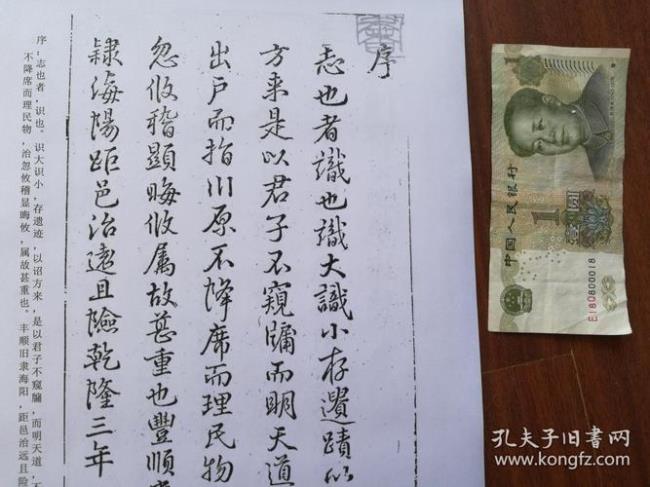 序
志也者識也識大識小存遺蹟以
方来是以君子不窺牖而明天道
出户而指川原不降席而理民物
忽攸稽顯晦攸属故甚重也豐順
隸海陽距邑治遠且險乾隆三年
序:志也者,识也。识大识小,存遗迹,以诏方来,是以君子不窥牖,而明天道,
不降席而理民物,治忽攸稽显晦攸,属故甚重也。丰顺旧隶海阳,距邑治远且险
中国人民银行
1
壹圆
1
E180800018
孔夫子旧书网
www.kongfz.com